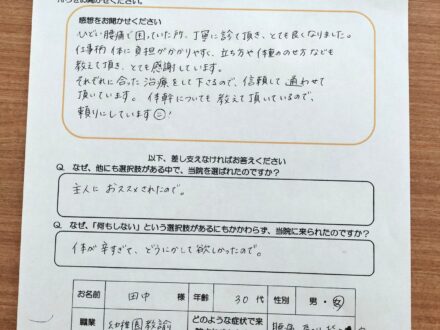 感想をお聞かせください
ひどい腰痛で困っていた所、丁寧に診て頂き、とても良くなりました。
仕事柄 体に負担がかかりやすく、立ち方や体重のせ方なども
教えて頂き、とても感謝しています。
それぞれに合った治療をして下さるので、信頼して通わせて
頂いています。体幹についても教えて頂いているので、
頼りにしています!
以下、差し支えなければお答えください
Q. なぜ、他にも選択肢がある中で、当院を選ばれたのですか?
主人におススメされたので。
Q. なぜ、「何もしない」という選択肢があるにもかかわらず、当院に来られたのですか?
体が辛すぎて、どうにかして欲しかったので。
お名前 田中 様 年齢 30代 性別 男・女
職業 幼稚園教諭 どのような症状で来